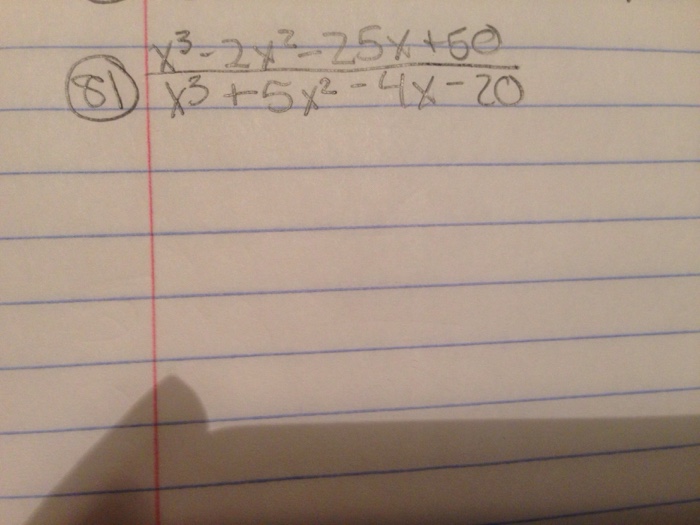 x³ - 2x² - 25x + 50
81 x³ + 5x² - 4x - 20